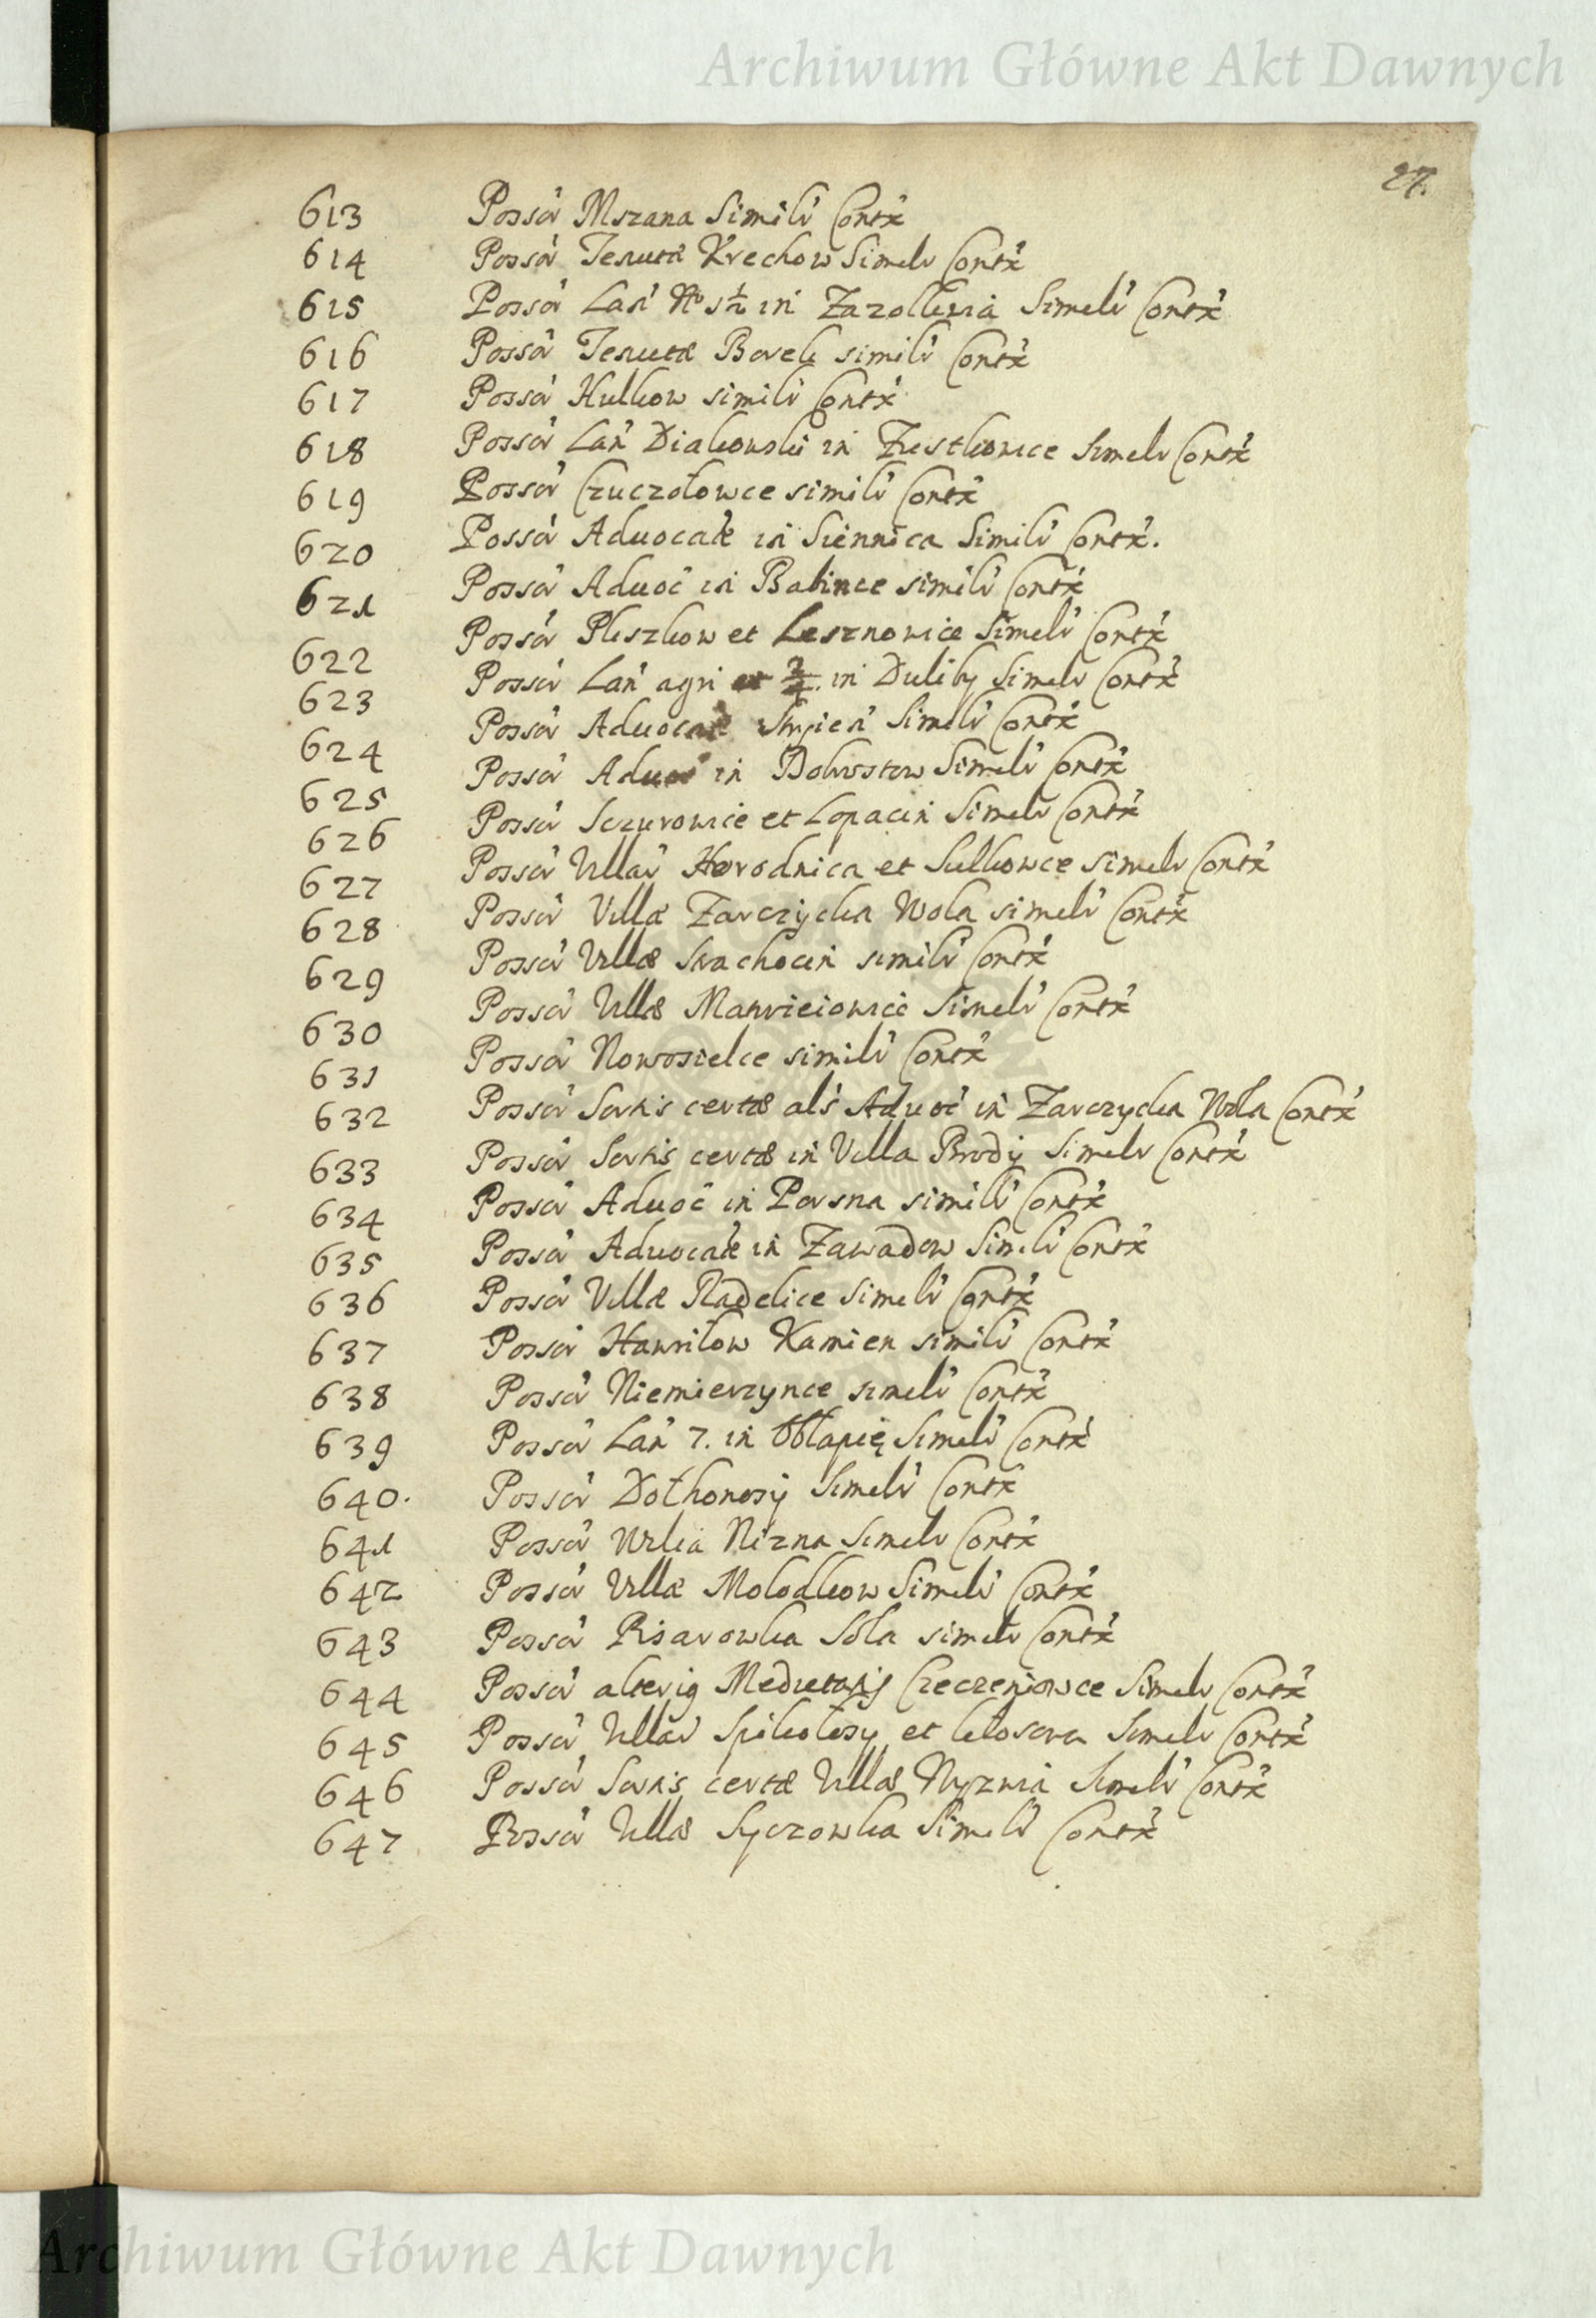 Archiwum Główne Akt Dawnych
27.
613 Possõr Mszana Simili Contx
614 Possõr Tenutæ Krechow Simili Contx
615 Possõr Lan N° 5½ in Simili Contx
616 Possõr Tenutæ Borek simili Contx
617 Possõr Hulkow simili Contx
618 Possõr Lan Diakowski in Simili Contx
619 Possõr Czuczołowce simili Contx
620 Possõr Aduocatæ in Siennica Simili Contx.
621 Possõr Aduoc in Babince simili Contx
622 Possõr Pleszkow et Lesznowice Simili Contx
623 Possõr Lan agri et in Duliby Simili Contx
624 Possõr Aduocatæ Simili Contx
625 Possõr Aduoc in Dobrostow Simili Contx
626 Possõr Sczurowice et Lopacin Simili Contx
627 Possõr Villar Horodnica et Sulkowce simili Contx
628 Possõr Villæ Zarczycka Wola simili Contx
629 Possõr Villæ Srachocin simili Contx
630 Possõr Villæ Simili Contx
631 Possõr Nowosielce simili Contx
632 Possõr Sortis certæ als Aduoc in Zarczycka Wola Contx
633 Possõr Sortis certæ in Villa Brody Simili Contx
634 Possõr Aduoc in Porsna simili Contx
635 Possõr Aduocatæ in Zawadow Simili Contx
636 Possõr Villæ Radelice Simili Contx
637 Possõr Hawriłow Kamien simili Contx
638 Possõr Niemierzynce simili Contx
639 Possõr Lan 7. in Obłapię Simili Contx
640. Possõr Simili Contx
641 Possõr Wilia Nizna Simili Contx
642 Possõr Villæ Molodkow Simili Contx
643 Possõr Pisarowka Sola simili Contx
644 Possõr alterig Medietatis Czeczeniowce Simili Contx
645 Possõr Villar Spikołosy et Simili Contx
646 Possõr Sortis certæ Villæ Simili Contx
647 Possõr Villæ Syczowka Simili Contx
Archiwum Główne Akt Dawnych